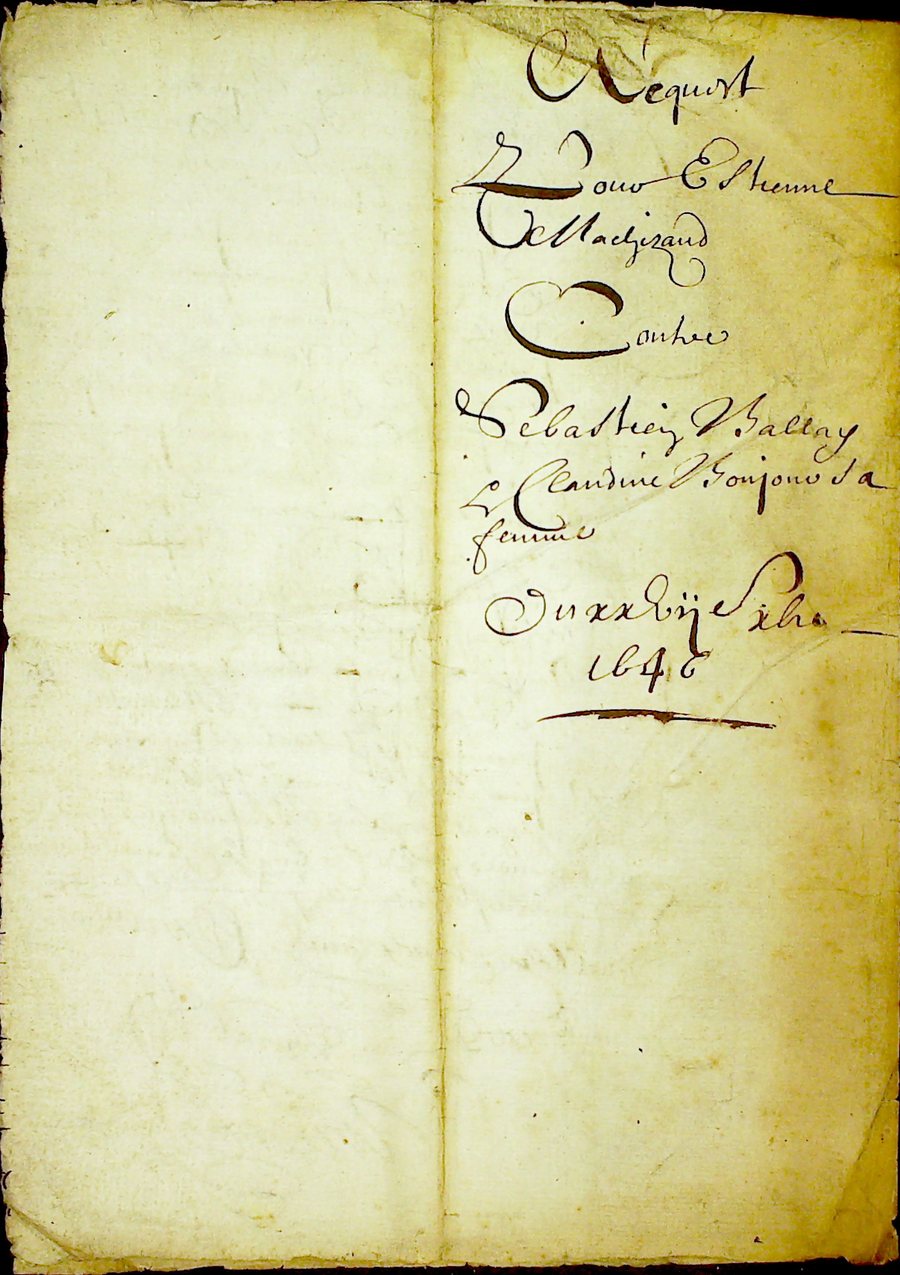 Acquest
Pour Estienne
Machizaud
Contre
Sebastien Ballay
& Claudine Bonjour sa
femme
Du xxvije xbre
1646